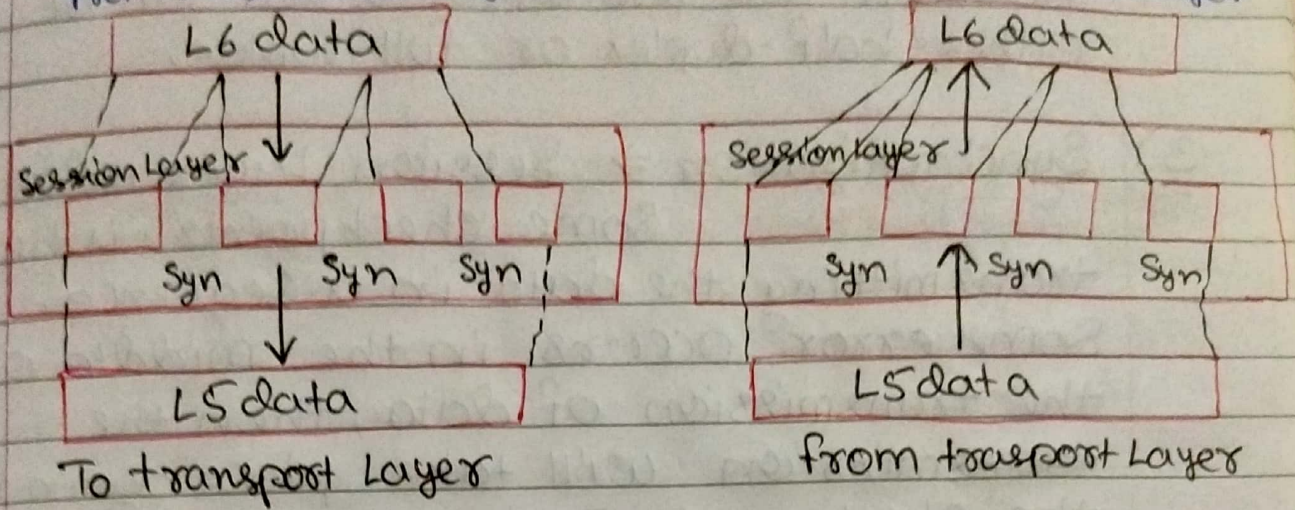 L6 data
Session Layer
Syn Syn Syn
L5 data
To transport Layer
L6 data
Session Layer
Syn Syn Syn
L5 data
from trasport Layer